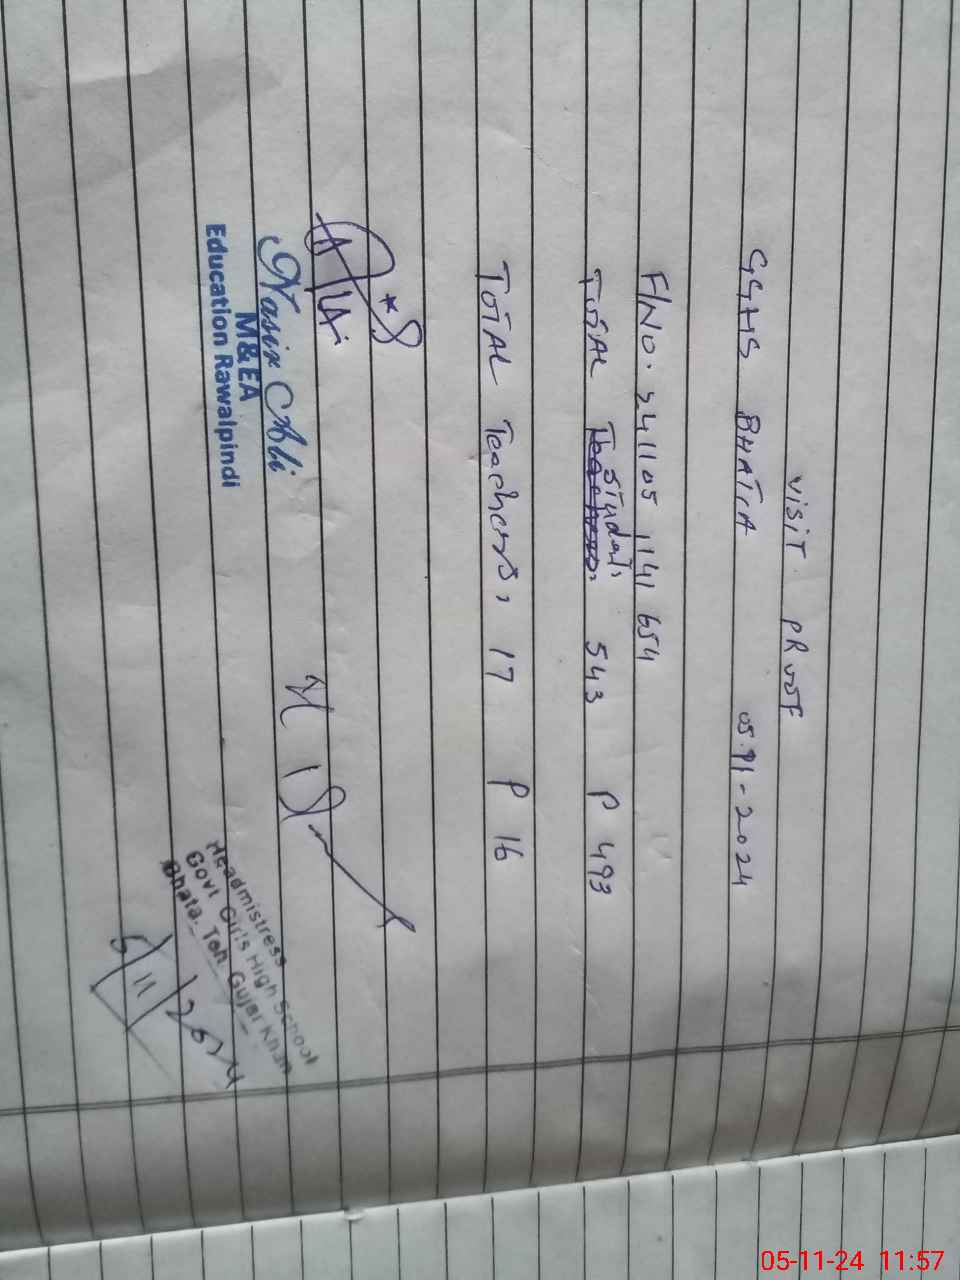 VISIT PROOF
GGHS BHATTA 05.11-2024
F/NO. 241105 1141 654
TOTAL Student, 543 P 493
TOTAL Teachers, 17 P 16
Nasir Ali
M&EA
Education Rawalpindi
Headmistress
Govt Girls High School
Bhata. Teh Gujar Khan
5/11/2024
05-11-24 11:57